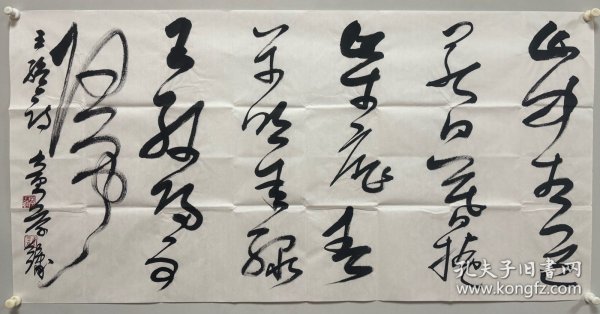 山中相送
罢日暮掩
柴扉春
草明年绿
王孙归不
归
王维诗
孔夫子旧书网
www.kongfz.com